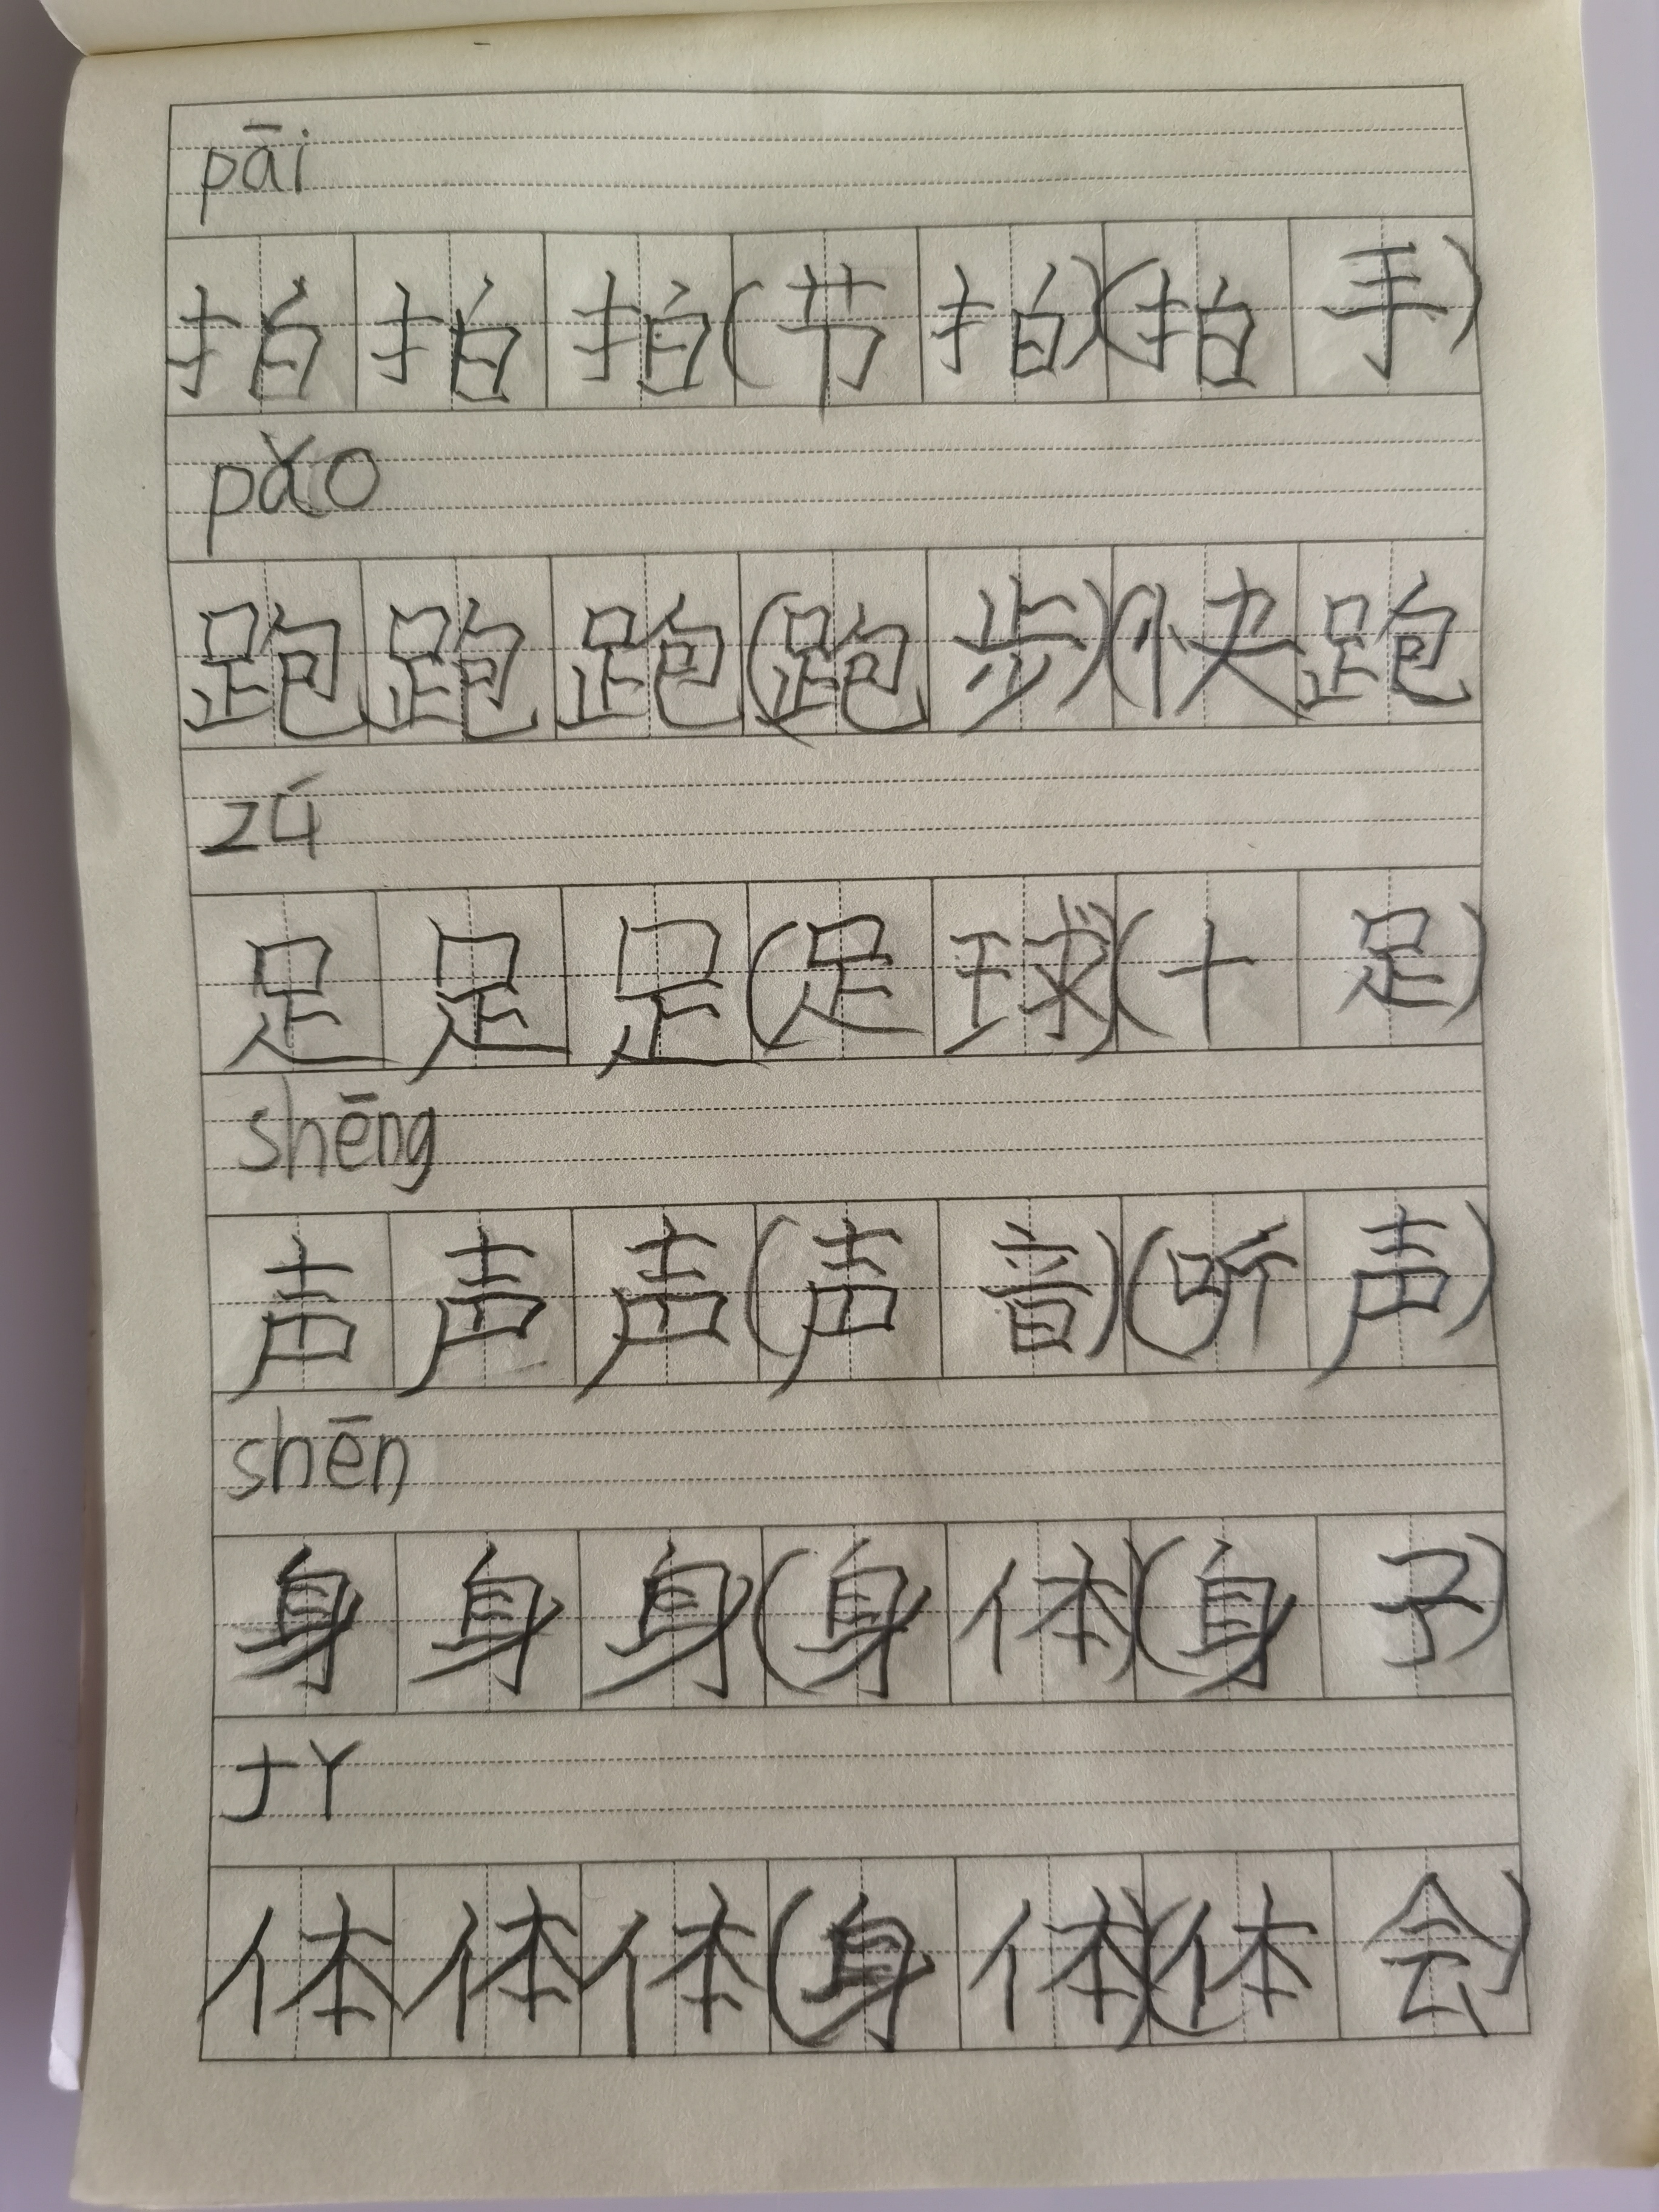 pāi
拍拍拍(节拍)(拍手)
pǎo
跑跑跑(跑步)(快跑
zú
足足足(足球)(十足)
shēng
声声声(声音)(听声)
shēn
身身身(身体)(身子)
tǐ
体体体(身体)(体会)